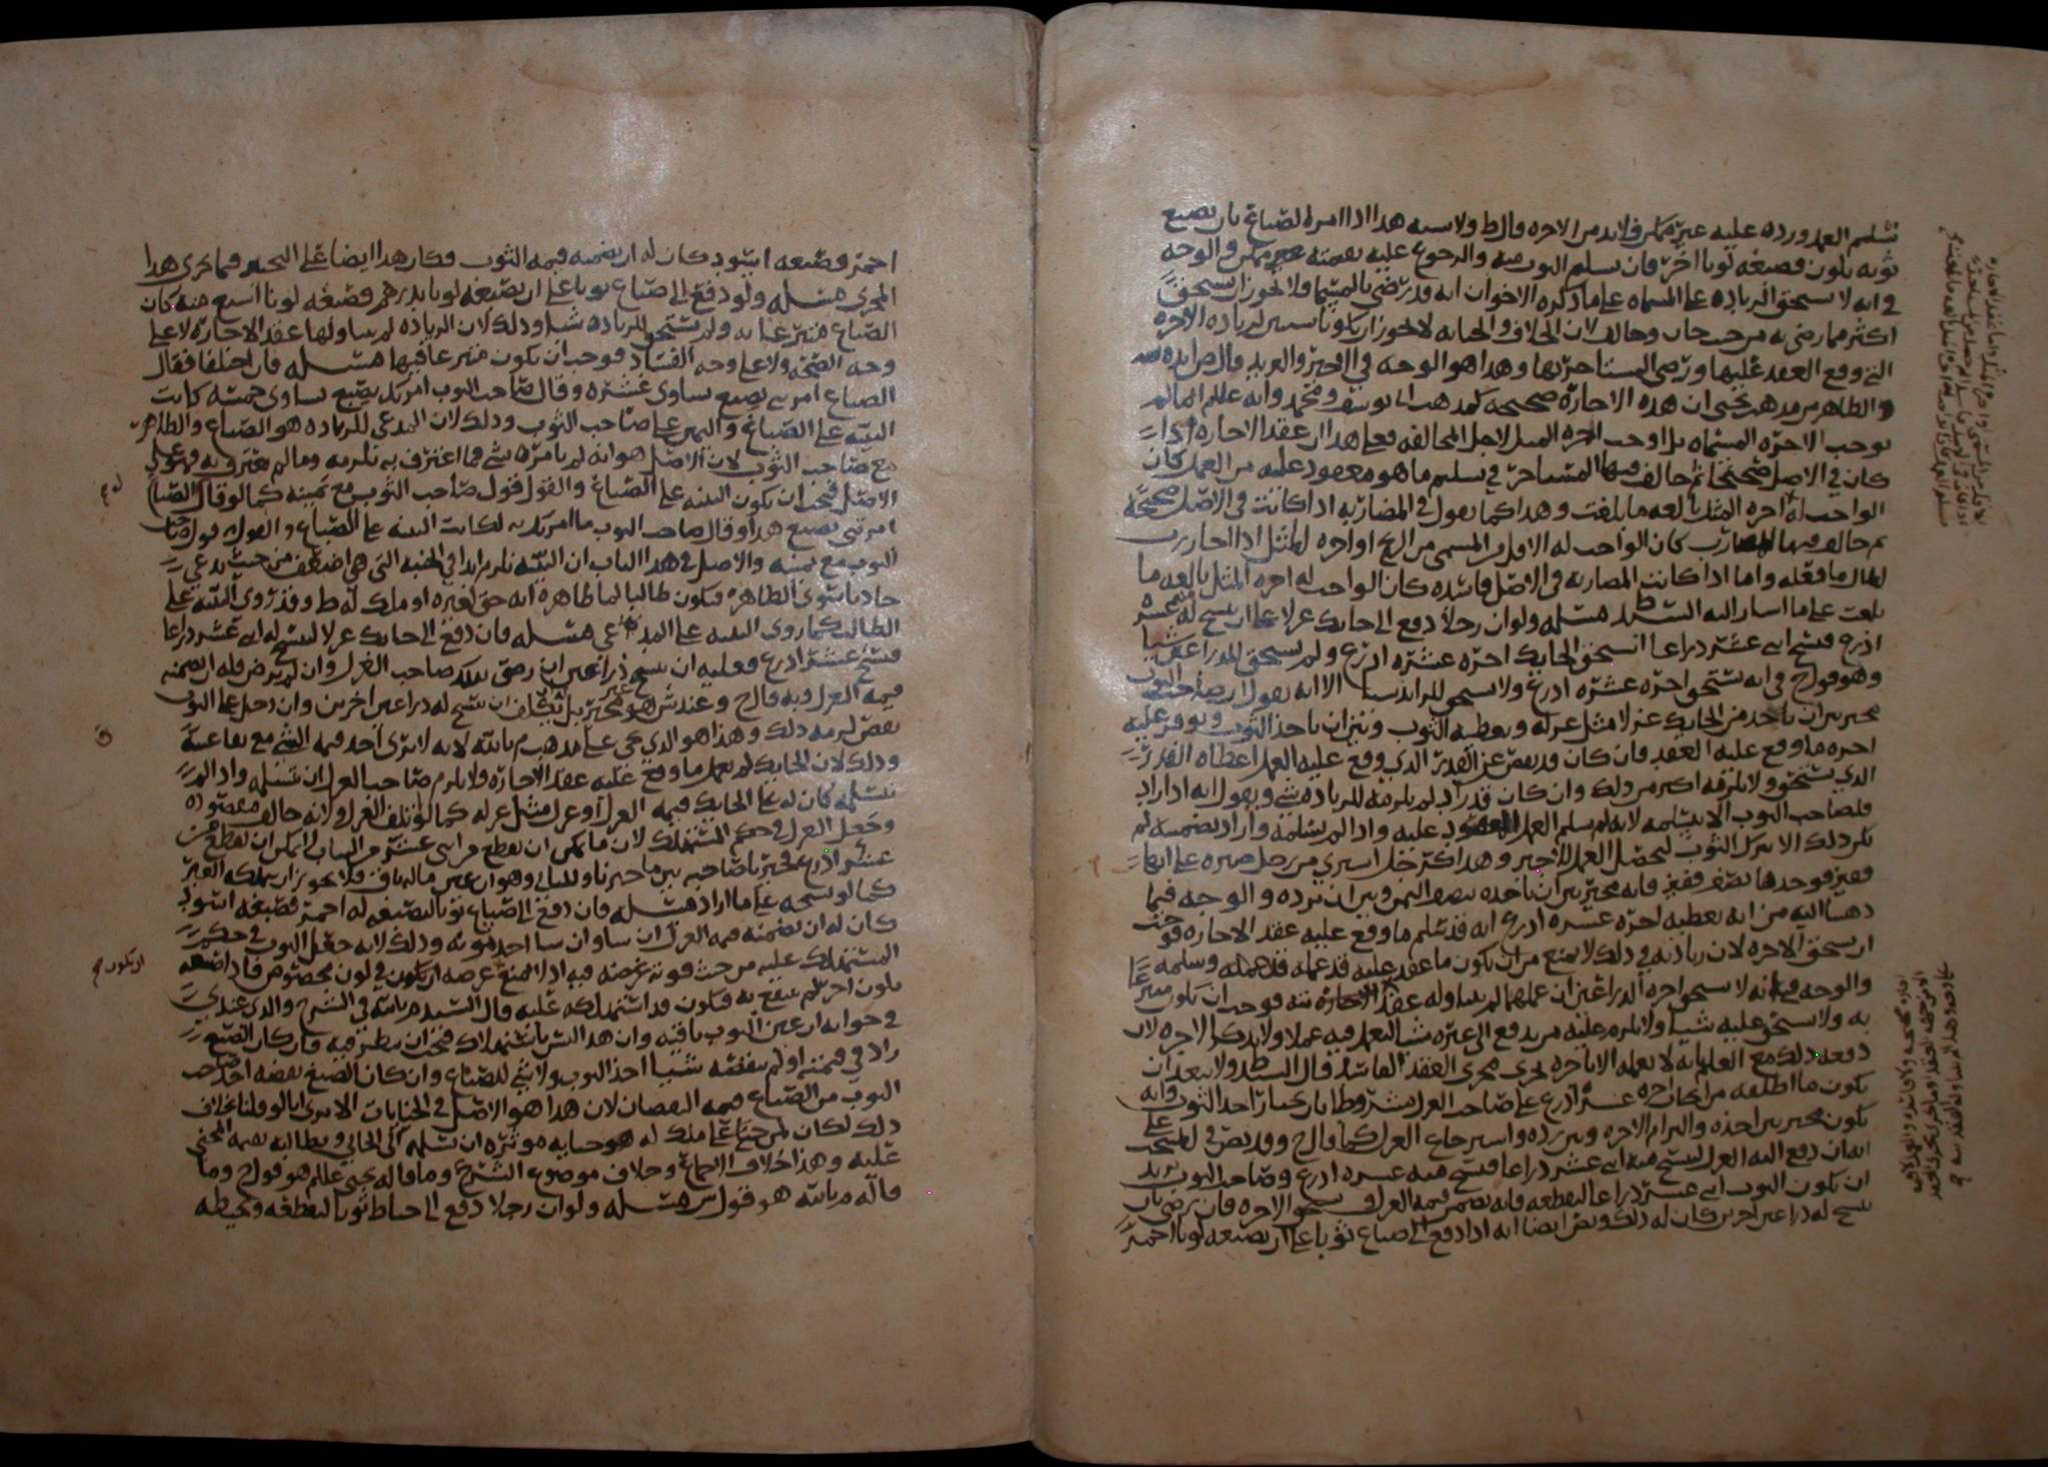 تسليم العمل ورده عليه غير ممكن فلابد من الاجره قال ط ولا يشبه هذا اذا امر الصباغ بان يصبغ
ثوبه بلون فصبغه لونا اخر فان تسليم الثوب منه والرجوع عليه بقيمته ممكن والوجه
في انه لا يستحق الزياده على المسماه على ما ذكره الاخوان انه قد رضي بالمسمى ولا يجوز ان يستحق
اكثر مما رضي به من حيث خان وخالف لان الخلاف والخيانه لا يجوز ان يكونا سببين لزياده الاجره
التي وقع العقد عليها ورضي المستاجر بها وهذا هو الوجه في
والظاهر من مذهب يحيى ان هذه الاجاره صحيحه كمذهب ابي يوسف ومحمد وانه عللم لما لم
يوجب الاجره المسماه بل اوجب اجره المثل لاجل المخالفه فعلى هذا ان عقد الاجاره اذا
كان في الاصل صحيحا ثم خالف فيها المستاجر في تسليم ما هو معقود عليه من العمل كان
الواجب له اجره المثل بالغه ما بلغت وهذا كما يقول في المضاربه اذا كانت في الاصل صحيحه
ثم خالف فيها المضارب كان الواجب له الاقل من المسمى من الربح او اجره المثل اذا اجاز رب
المال ما فعله واما اذا كانت المضاربه في الاصل فاسده كان الواجب له اجره المثل بالغه ما
بلغت على ما اشار اليه السيد ط مسله ولو ان رجلا دفع الى حائك غزلا على ان ينسج له عشره
اذرع فنسج اثني عشر ذراعا استحق الحائك اجره عشره اذرع ولم يستحق للذراعين شيا
وهو قول ح في انه يستحق اجره عشره اذرع ولا يستحق للزائد شيا الا انه يقول ان صاحب الثوب
مخير بين ان ياخذ من الحائك غزلا مثل غزله ويعطيه الثوب وبين ان ياخذ الثوب ويوفر عليه
اجره ما وقع عليه العقد فان كان قد نقص عن القدر الذي وقع عليه العمل اعطاه القدر
الذي يستحق ولا يلزمه اكثر من ذلك وان كان قد زاد لم يلزمه للزياده شي ويقول انه اذا اراد
فلصاحب الثوب الا يتسلمه لانه لم يسلم العمل المعقود عليه واذا لم يتسلمه واراد تضمينه لم
يكن ذلك الا بترك الثوب ليحصل العمل للاجير وهذا كرجل اشترى من رجل صبره على انها
قفيز فوجدها نصف قفيز فانه مخير بين ان ياخذه بنصف الثمن وبين ان يرده والوجه فيما
ذهبنا اليه من انه يعطيه اجره عشره اذرع انه قد سلم ما وقع عليه عقد الاجاره فوجب
ان يستحق الاجره لان زيادته في ذلك لا يمنع من ان يكون ما عقد عليه قد عمله وسلمه
والوجه في انه لا يستحق اجره الذراعين ان عملهما لم يتناوله عقد الاجاره بته فوجب ان يكون متبرعا
به ولا يستحق عليه شيا ولا يلزم عليه من يدفع الى غيره شيا ليعمل فيه عملا ولا يذكر الاجره لان
دفعه ذلك مع العلم بانه لا يعمله الا باجره يجري مجرى العقد الفاسد قال السيد ط ولا يبعد ان
يكون ما اطلقه من ايجاب اجره عشره اذرع على صاحب الغزل بشرط ان يختار اخذ الثوب وانه
يكون مخير بين اخذه والتزام الاجره وبين رده واسترجاع الغزل كما قال ح وقد نص في المنتخب على
انه ان دفع اليه الغزل لينسج منه اثني عشر ذراعا فنسج منه عشره اذرع وصاحب الثوب يريد
ان يكون الثوب اثني عشر ذراعا ليقطعه فانه يضمن قيمه الغزل ويستحق الاجره فان رضي بان
ينسج له ذراعين اخرين كان له ذلك ونص ايضا انه اذا دفع الى صباغ ثوبا على ان يصبغه لونا احمر
احمر فصبغه اسود كان له ان يضمنه قيمه الثوب فكان هذا ايضا على التخيير فيما يجري هذا
المجرى مسله ولو دفع الى صباغ ثوبا على ان يصبغه لونا بدرهم فصبغه لونا اشبع منه كان
الصباغ متبرعا به ولم يستحق للزياده شيا وذلك لان الزياده لم يتناولها عقد الاجاره لا على
وجه الصحه ولا على وجه الفساد فوجب ان يكون متبرعا فيها مسله فان اختلفا فقال
الصباغ امرتني بصبغ يساوي عشره وقال صاحب الثوب امرتك بصبغ يساوي خمسه كانت
البينه على الصباغ واليمين على صاحب الثوب وذلك لان المدعي للزياده هو الصباغ والظاهر
مع صاحب الثوب لان الاصل هو انه لم يامره بشي فما اعترف به يلزمه وما لم يعترف به فهو على
الاصل فيجب ان يكون البينه على الصباغ والقول قول صاحب الثوب مع يمينه كما لو قال الصباغ
امرتني بصبغ هذا وقال صاحب الثوب ما امرتك به لكانت البينه على الصباغ والقول قول صاحب
الثوب مع يمينه والاصل في هذا الباب ان البينه تلزم ابدا في الجنبه التي هي اضعف من حيث يدعي
حادثا سوى الظاهر فيكون طالبا لما ظاهره انه حق لغيره او ملك له ط وقد روي البينه على
الطالب كما روي البينه على المدعي مسله فان دفع الى حائك غزلا لينسج له اثني عشر ذراعا
فنسج عشره اذرع فعليه ان ينسج ذراعين ان رضي بذلك صاحب الغزل وان لم يرض فله ان يضمنه
قيمه الغزل وبه قال ح وعند ش هو غير مخير بل يكلف ان ينسج له ذراعين اخرين وان دخل على الثوب
نقص لزمه ذلك وهذا هو الذي يجي على مذهب م بالله لانه لا يرى اخذ قيمه الشي مع بقا عينه
وذلك لان الحائك لم يعمل ما وقع عليه عقد الاجاره ولا يلزم صاحب الغزل ان يتسلمه واذا لم
يتسلمه كان له على الحائك قيمه الغزل او غزل مثل غزله كما لو تلف الغزل ولانه خالف مقصوده
وجعل الغزل في حكم المستهلك لان ما يمكن ان يقطع من اثني عشر من الثياب لا يمكن ان يقطع من
عشره اذرع فخيرنا صاحبه بين ما خيرناه وللباني وهو ان عين ماله باق فلا يجوز ان يملكه الغير
كما لو نسجه على ما اراد مسله فان دفع الى صباغ ثوبا ليصبغه له احمر فصبغه اسود
كان له ان يضمنه قيمه الغزل ان شا وان شا اخذ ثوبه وذلك لانه جعل الثوب في حكم
المستهلك عليه من حيث فوته غرضه فيه اذ غرضه ان يكون في لون مخصوص فاذا صبغه
بلون اخر لم ينتفع به فيكون قد استهلكه عليه قال السيد م بالله في الشرح والذي عندي
في جوابه ان عين الثوب باقيه وان هذا ليس باستهلاك فيجب ان ينظر فيه فان كان الصبغ
زاد في قيمته او لم ينقصه شيا اخذ الثوب ولا شي للصباغ وان كان الصبغ نقصه اخذ صاحب
الثوب من الصباغ قيمه النقصان لان هذا هو الاصل في الجنايات الا ترى انا لو قلنا بخلاف
ذلك لكان لمن جنى على ملك له جنايه موثره ان يسلمه الى الجاني ويطالبه بقيمه المجني
عليه وهذا خلاف الاجماع وخلاف موضوع الشرع وما قاله يحيى عللم هو قول ح وما
قاله م بالله هو قول ش مسله ولو ان رجلا دفع الى خياط ثوبا ليقطعه ويخيطه
ان يكون